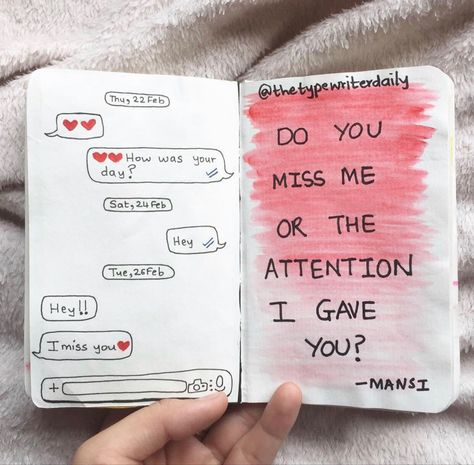 Thu, 22 Feb
❤❤
❤❤ How was your
day?
Sat, 24 Feb
Hey
Tue, 26 Feb
Hey!!
I miss you❤
+
@thetypewriterdaily
DO YOU
MISS ME
OR THE
ATTENTION
I GAVE
YOU?
-MANSI